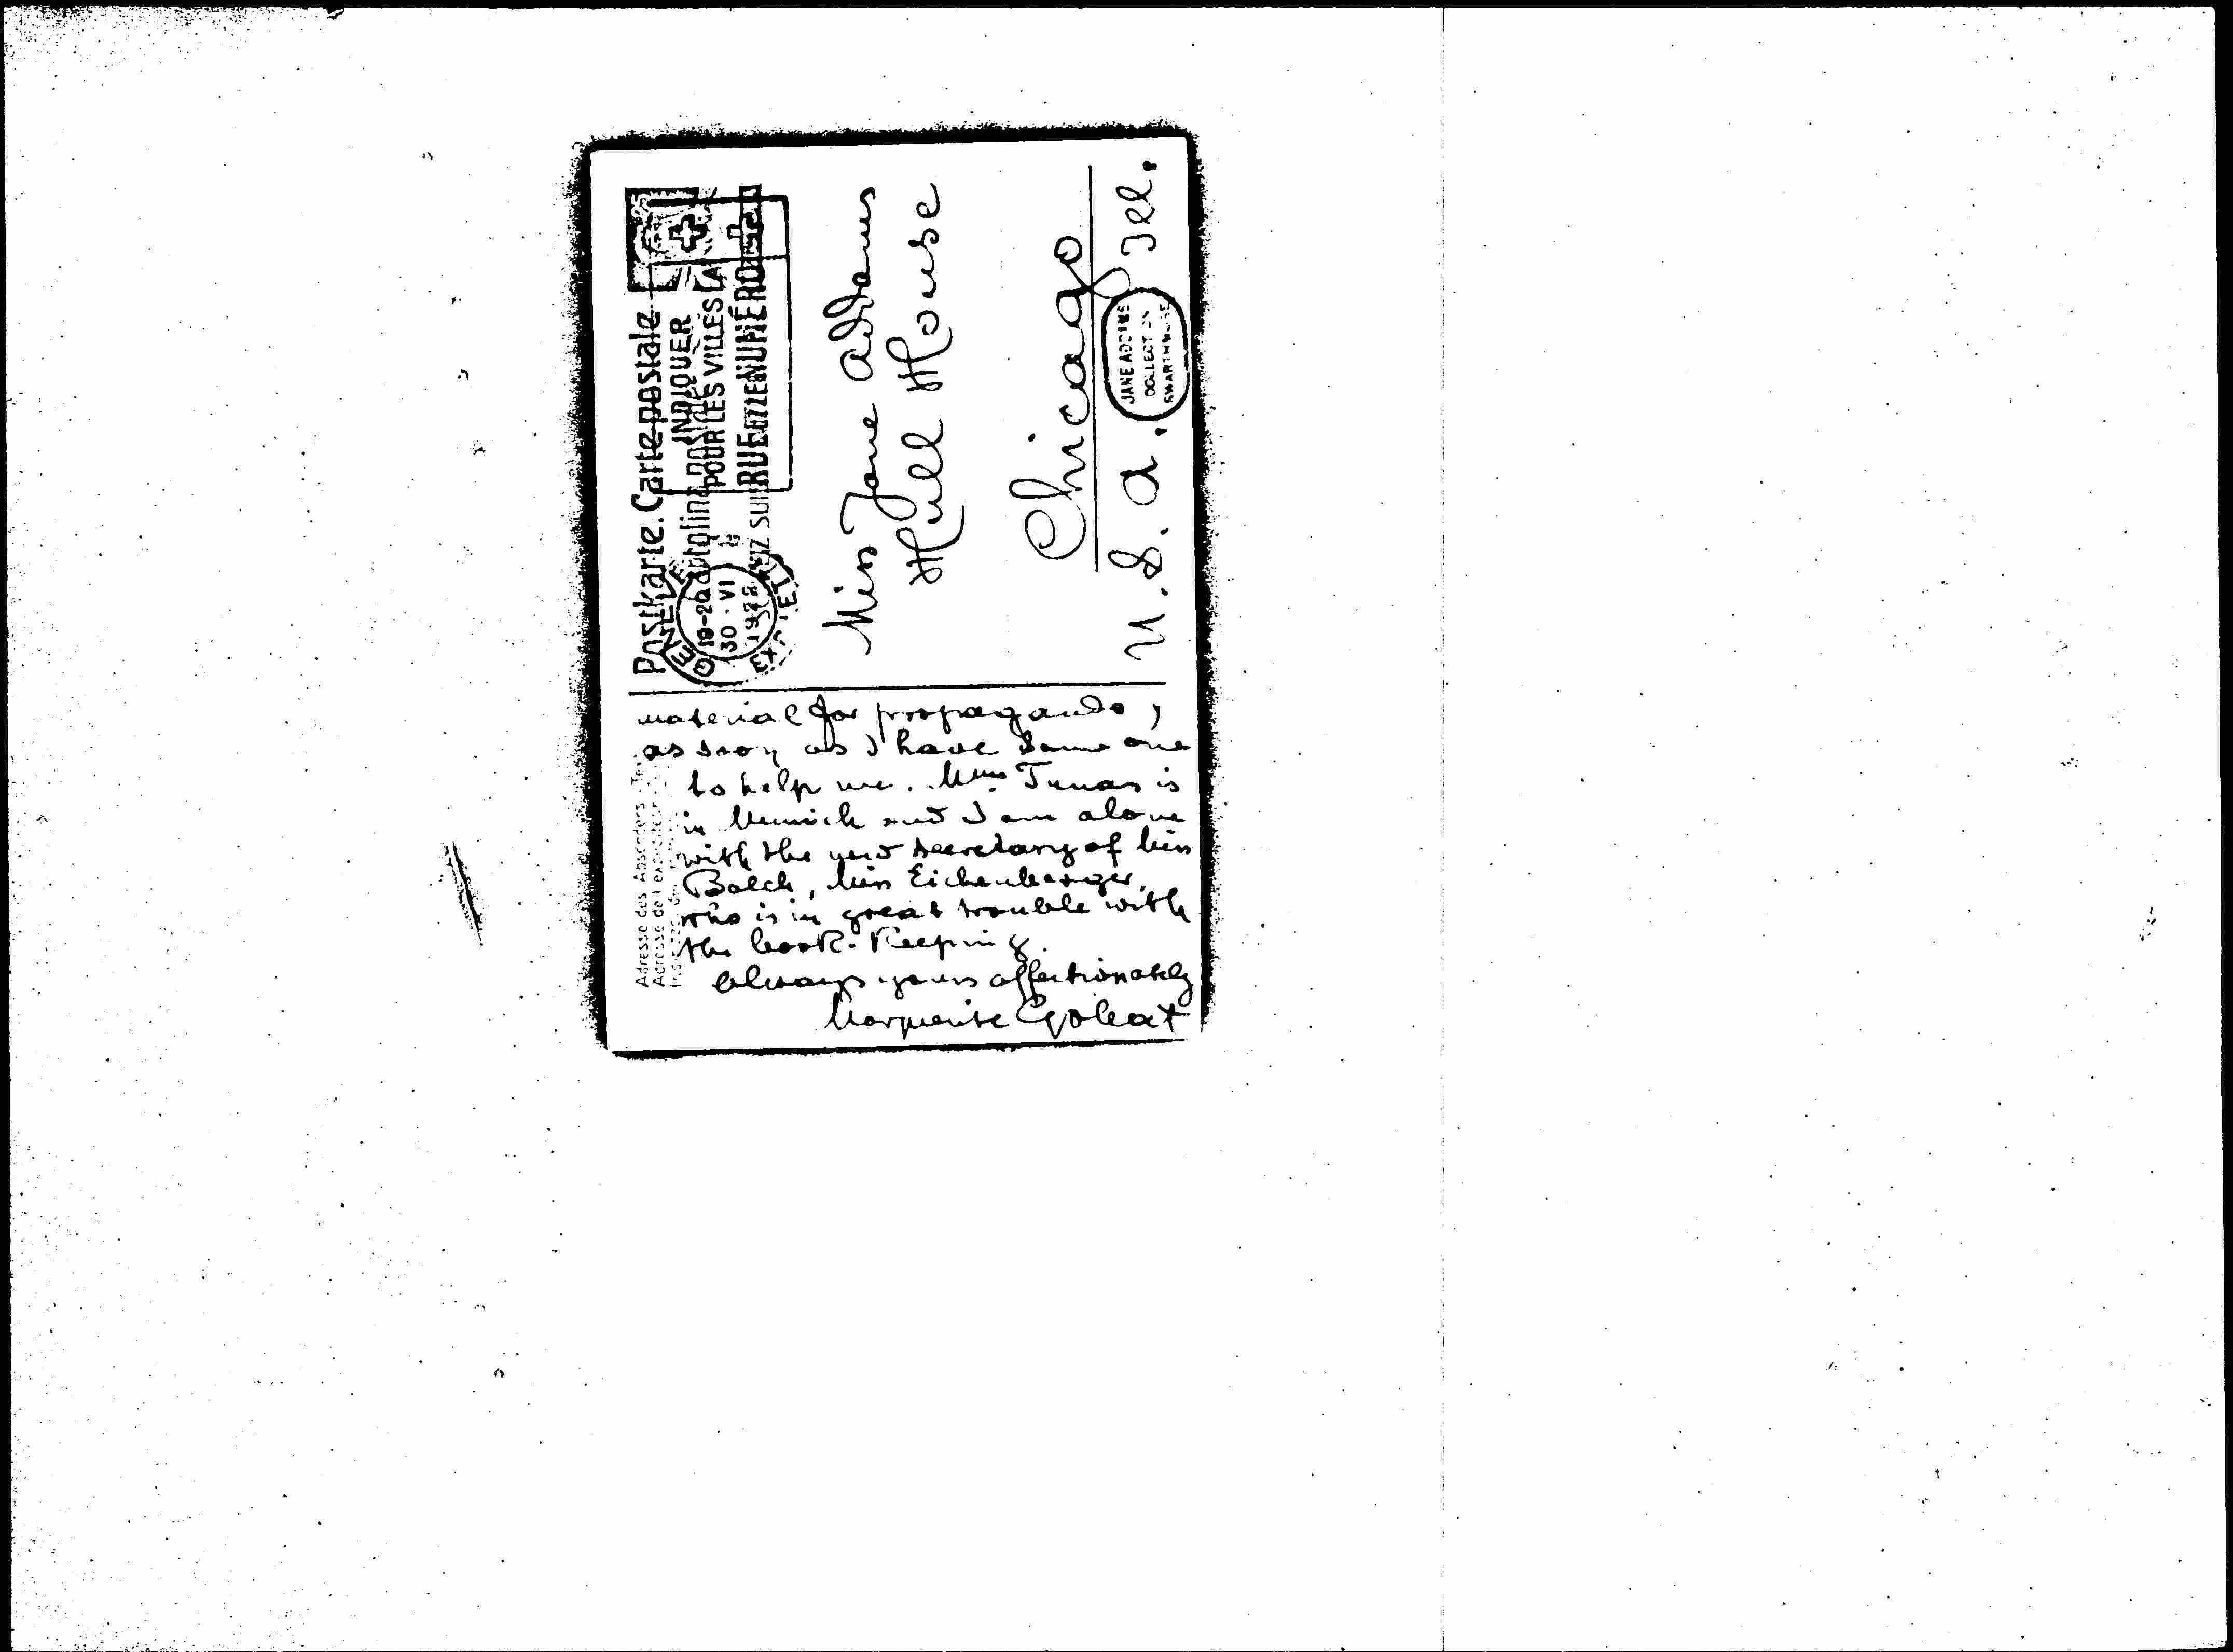 Postkarte. Carte postale
INDIQUER
POUR LES VILLES LA
RUE ET LE NUMÉRO
GENÈVE
19-20
30.VI
EXP. LET
Miss Jane Addams
Hull House
Chicago
U.S.A. Ill.
JANE ADDAMS
COLLECTION
SWARTHMORE
material for propaganda,
as soon as I have some one
to help me. Mme Tunas is
in Munich and I am alone
with the new secretary of Miss
Balch, Miss Eichenberger,
who is in great trouble with
the book-keeping.
Always yours affectionately
Marguerite Gobat
Adresse des Absenders
Adresse de l'expéditeur